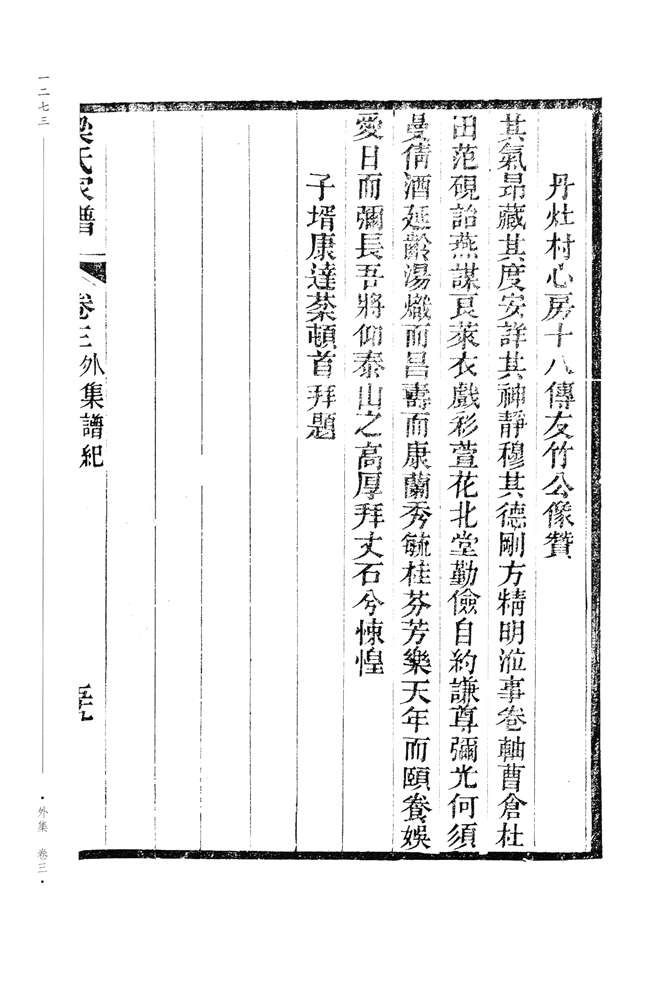 丹灶村心房十八傳友竹公像贊
其氣昂藏其度安詳其神靜穆其德剛方精明涖事卷軸曹倉杜
田范硯詒燕謀良萊衣戲彩萱花北堂勤儉自約謙尊彌光何須
曼倩酒延齡湯熾而昌壽而康蘭秀毓桂芬芳樂天年而頤養娛
愛日而彌長吾將仰泰山之高厚拜丈石兮悚惶
子壻康達棻頓首拜題
梁氏家譜 卷三外集譜紀 五十九
一二七三
·外集 卷三·